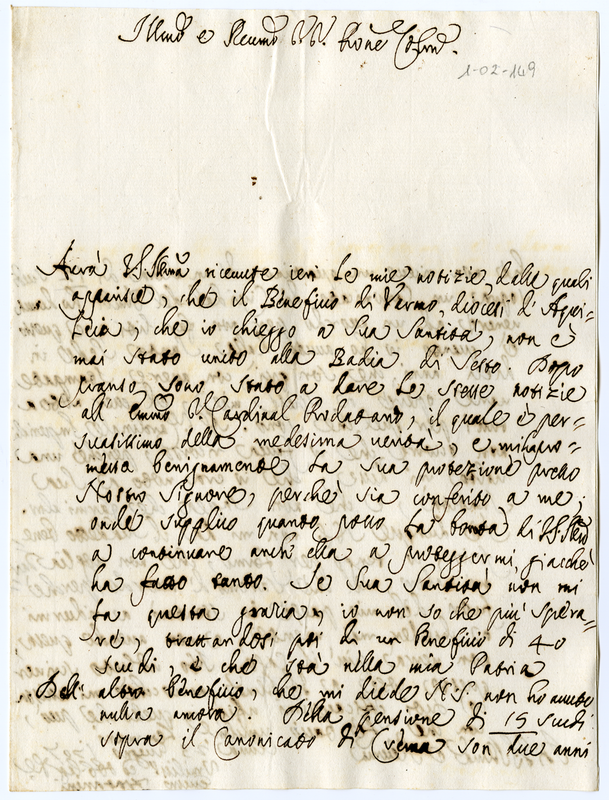 Illmo e Revmo Sr. Sr. Prone Colmo.
1-02-149
Avrà V. S. Illma ricevute ieri le mie notizie, dalle quali
apparisce, che il Beneficio di Varmo, diocesi d'Aqui-
leia, che io chieggo a Sua Santità, non è
mai stato unito alla Badia di Sesto. Dopo
pranzo sono stato a dare le stesse notizie
all' Emmo Sr. Cardinal Prodatario, il quale è per-
suatissimo della medesima verità, e mi à pro-
messa benignamente la sua protezione presso
Nostro Signore, perchè sia conferito a me;
onde supplico quanto posso la bontà di V. S. Illma
a continuare anch' ella a proteggermi, giacchè
ha fatto tanto. Se Sua Santità non mi
fa questa grazia, io non so che più spera-
re, trattandosi poi di un Beneficio di 40
scudi, e che stà nella mia Patria
Dell' altro beneficio, che mi diede N. S. non ho avuto
nulla ancora. Della pensione di 15 scudi
sopra il Canonicato di son due anni